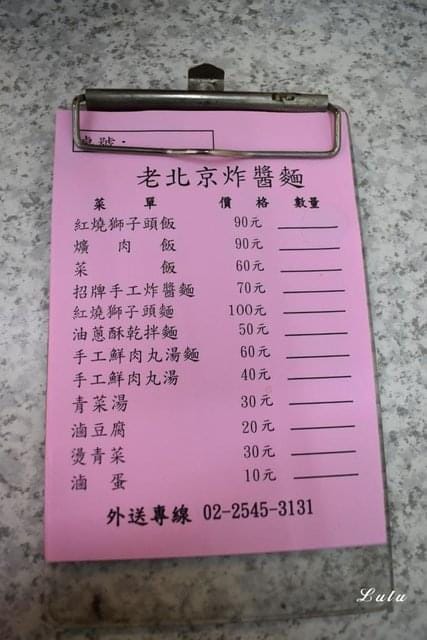 桌號：
老北京炸醬麵
菜單 價格 數量
紅燒獅子頭飯 90元
爌肉飯 90元
菜飯 60元
招牌手工炸醬麵 70元
紅燒獅子頭麵 100元
油蔥酥乾拌麵 50元
手工鮮肉丸湯麵 60元
手工鮮肉丸湯 40元
青菜湯 30元
滷豆腐 20元
燙青菜 30元
滷蛋 10元
外送專線 02-2545-3131
Lulu